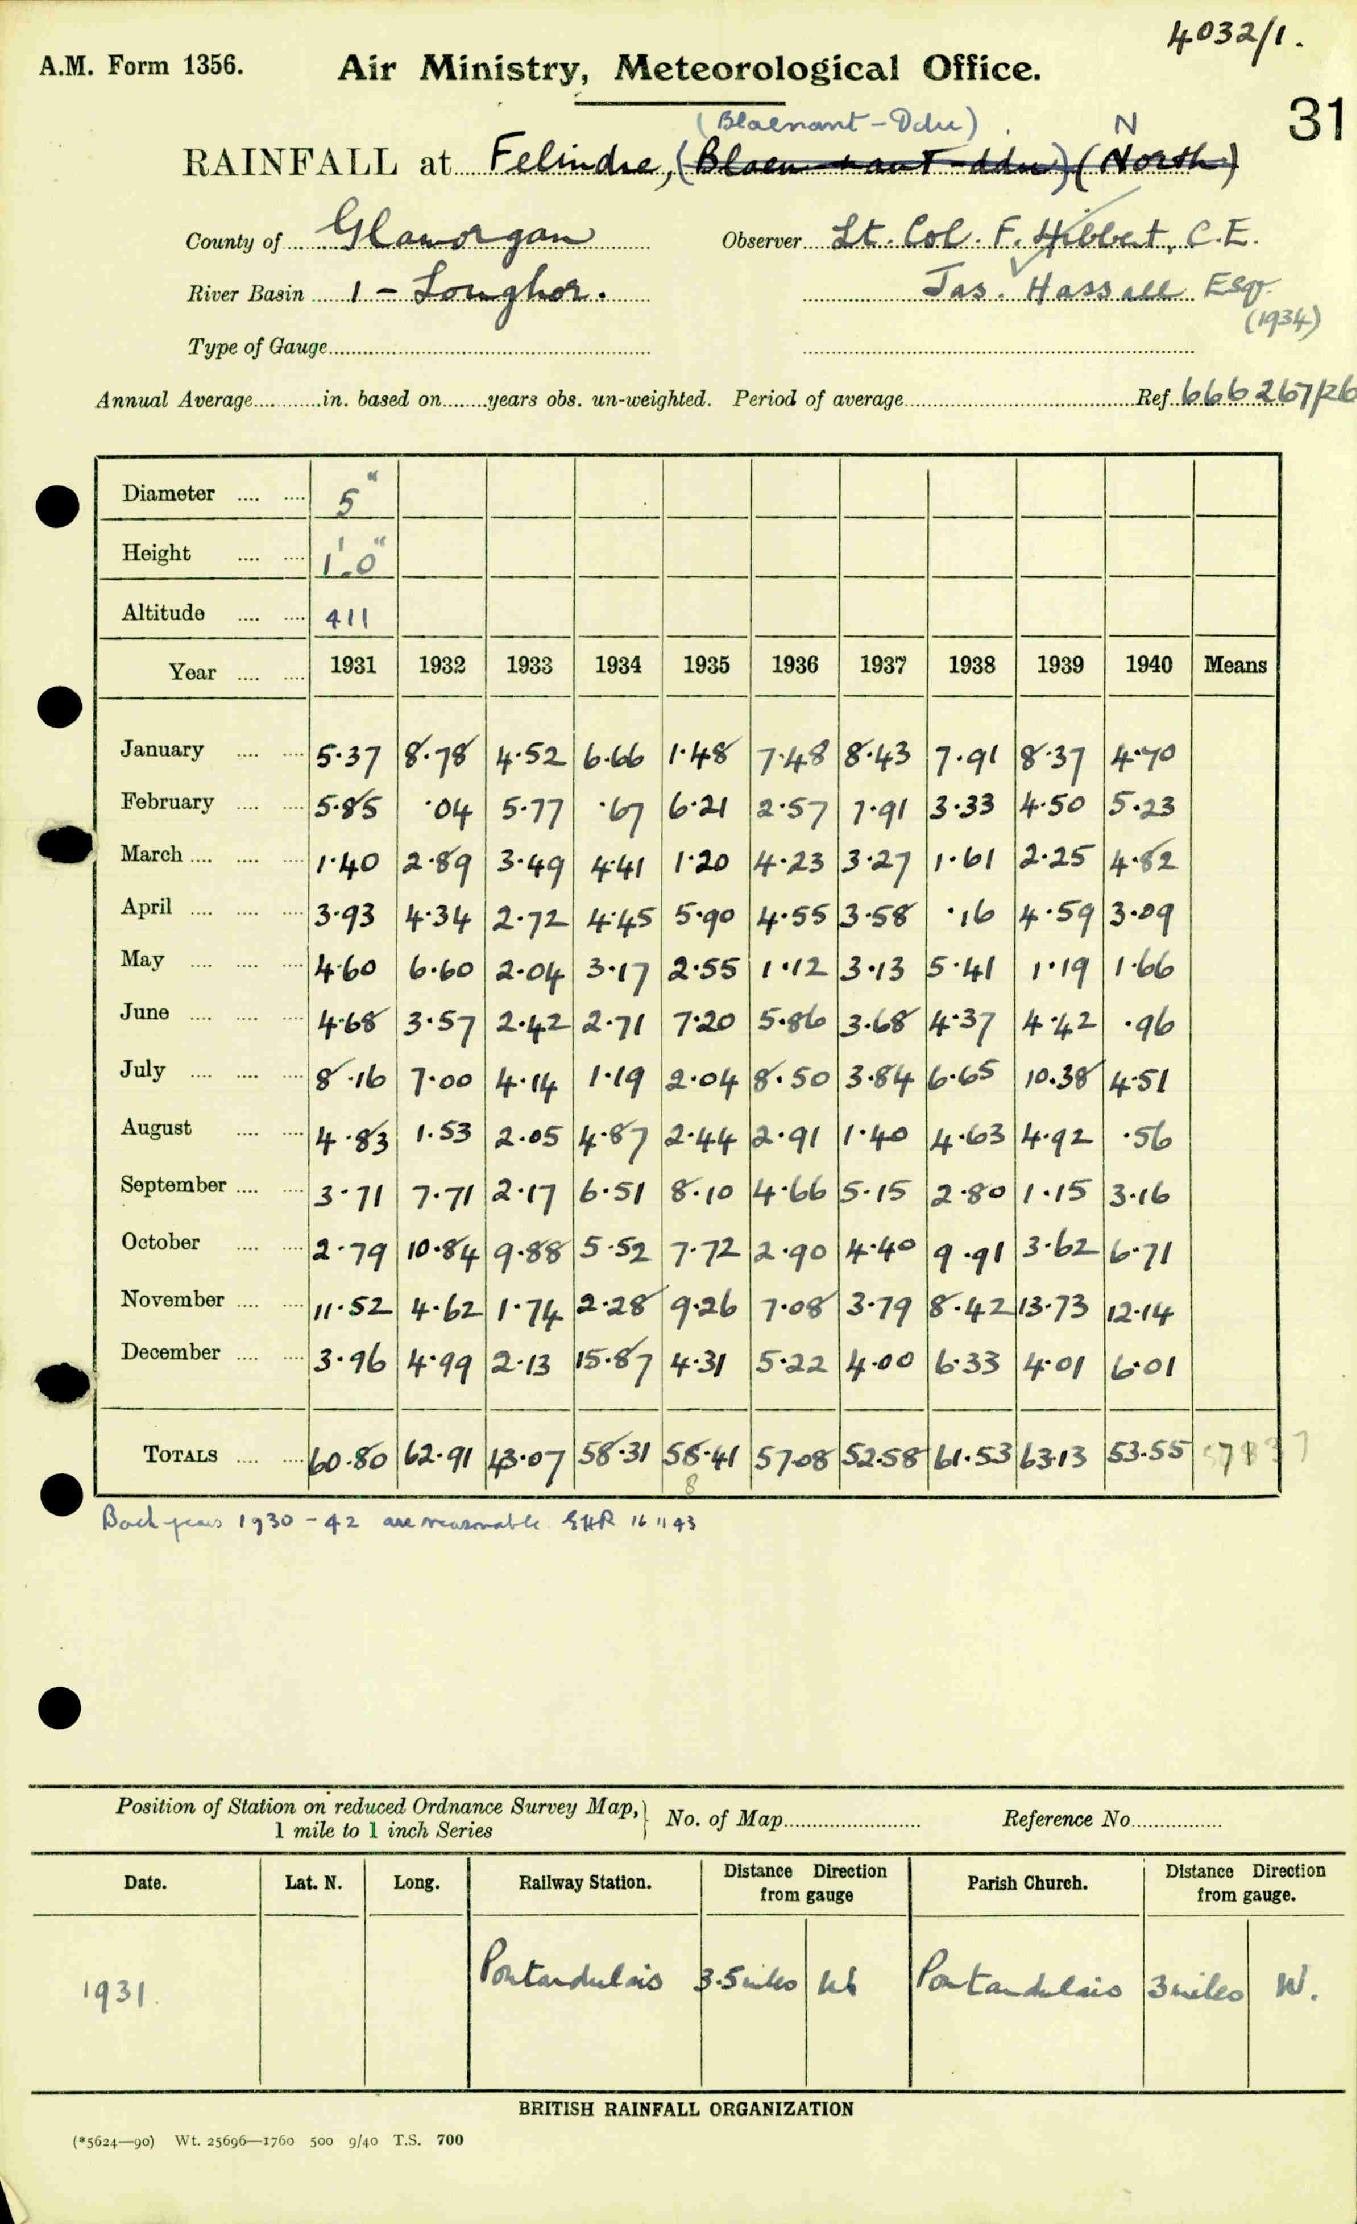 4032/1.
A.M. Form 1356. Air Ministry, Meteorological Office.
31
(Blaenant-Ddu) N
RAINFALL at Felindre, (Blaen-nant-ddu) (North)
County of Glamorgan Observer Lt. Col. F. Hibbert, C.E.
River Basin 1 - Loughor. Jas. Hassall Esq.
(1934)
Type of Gauge
Annual Average in. based on years obs. un-weighted. Period of average Ref. 666267/26
Diameter 5"
Height 1'.0"
Altitude 411
Year 1931 1932 1933 1934 1935 1936 1937 1938 1939 1940 Means
January 5.37 8.78 4.52 6.66 1.48 7.48 8.43 7.91 8.37 4.70
February 5.85 .04 5.77 .67 6.21 2.57 7.91 3.33 4.50 5.23
March 1.40 2.89 3.49 4.41 1.20 4.23 3.27 1.61 2.25 4.82
April 3.93 4.34 2.72 4.45 5.90 4.55 3.58 .16 4.59 3.09
May 4.60 6.60 2.04 3.17 2.55 1.12 3.13 5.41 1.19 1.66
June 4.68 3.57 2.42 2.71 7.20 5.86 3.68 4.37 4.42 .96
July 8.16 7.00 4.14 1.19 2.04 8.50 3.84 6.65 10.38 4.51
August 4.83 1.53 2.05 4.87 2.44 2.91 1.40 4.63 4.92 .56
September 3.71 7.71 2.17 6.51 8.10 4.66 5.15 2.80 1.15 3.16
October 2.79 10.84 9.88 5.52 7.72 2.90 4.40 9.91 3.62 6.71
November 11.52 4.62 1.74 2.28 9.26 7.08 3.79 8.42 13.73 12.14
December 3.96 4.99 2.13 15.87 4.31 5.22 4.00 6.33 4.01 6.01
TOTALS 60.80 62.91 43.07 58.31 58.41 57.08 52.58 61.53 63.13 53.55
8
Back years 1930-42 are reasonable. 16 11 43
Position of Station on reduced Ordnance Survey Map, No. of Map Reference No.
1 mile to 1 inch Series
Date. Lat. N. Long. Railway Station. Distance Direction from gauge Parish Church. Distance Direction from gauge.
1931. Pontardulais 3.5 miles W Pontardulais 3 miles W.
BRITISH RAINFALL ORGANIZATION
(*5624—90) Wt. 25696—1760 500 9/40 T.S. 700